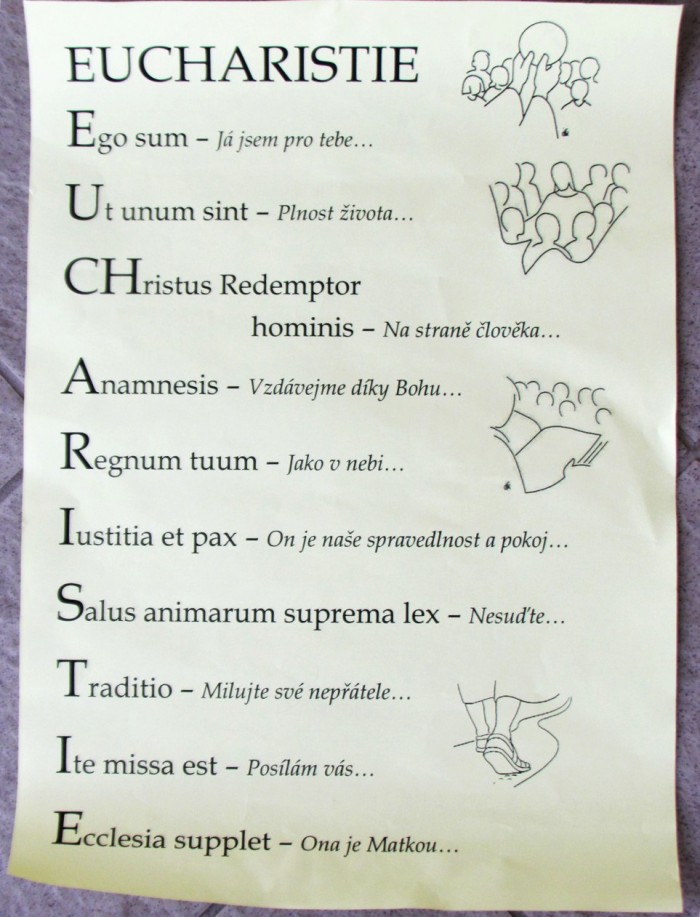 EUCHARISTIE
Ego sum – Já jsem pro tebe…
Ut unum sint – Plnost života…
CHristus Redemptor
hominis – Na straně člověka…
Anamnesis – Vzdávejme díky Bohu…
Regnum tuum – Jako v nebi…
Iustitia et pax – On je naše spravedlnost a pokoj…
Salus animarum suprema lex – Nesuďte…
Traditio – Milujte své nepřátele…
Ite missa est – Posílám vás…
Ecclesia supplet – Ona je Matkou…